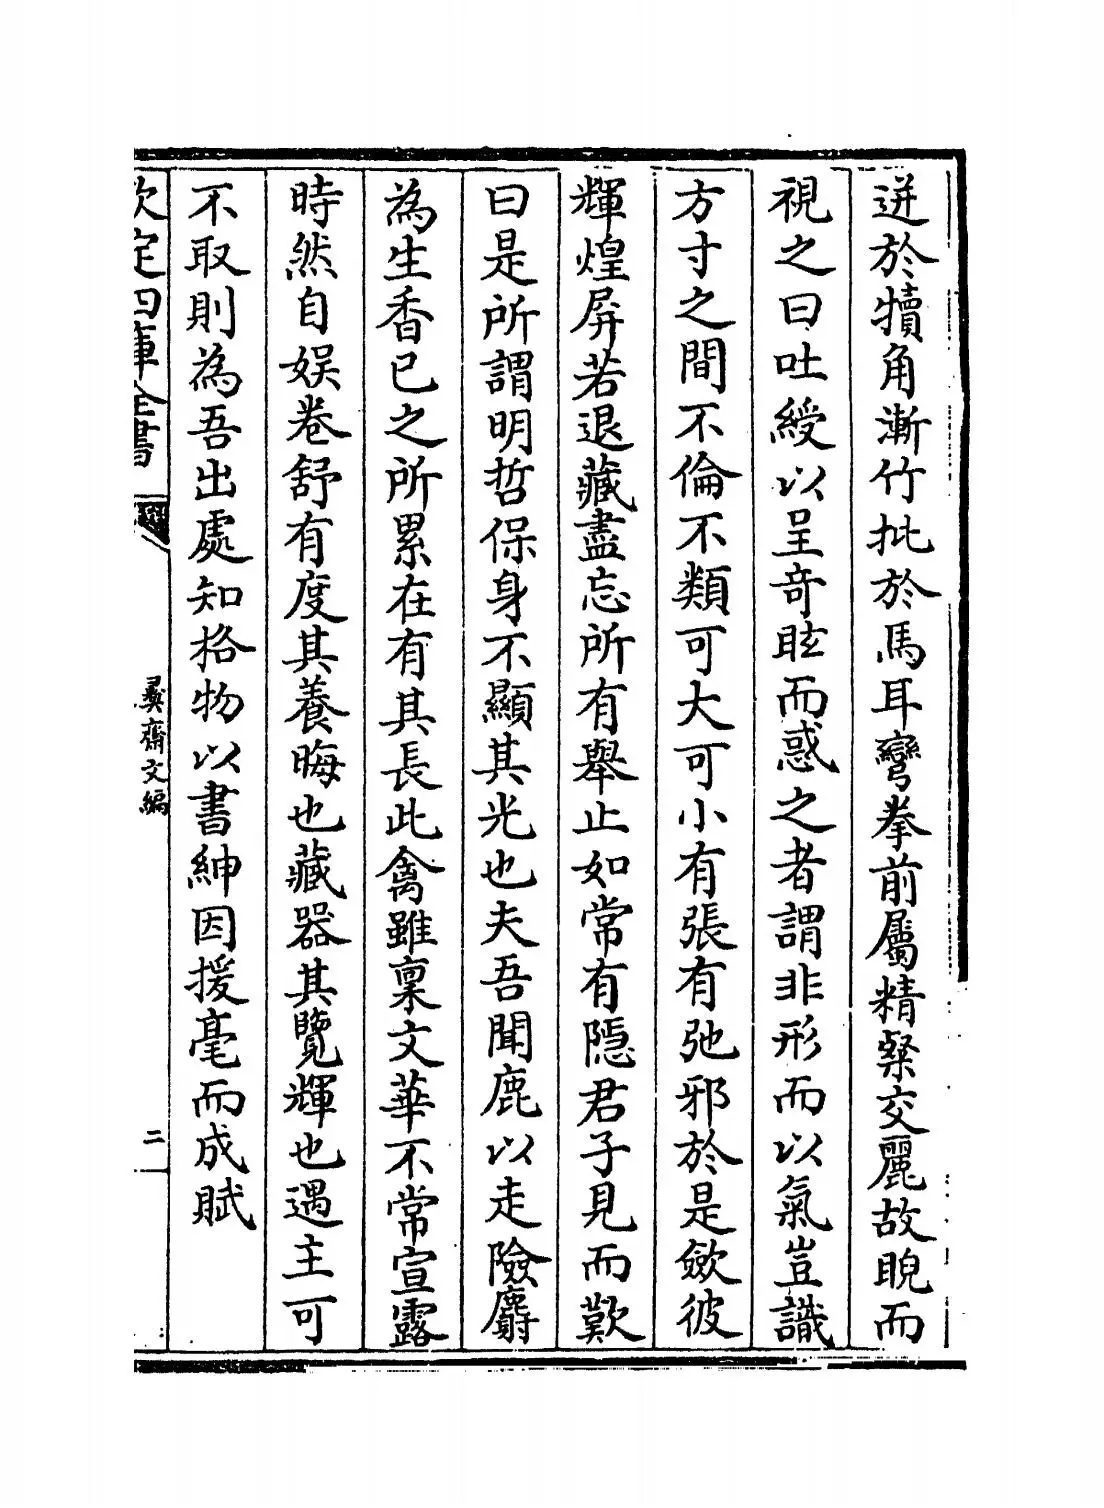 迸於犢角漸竹批於馬耳彎拳前屬精粲交麗故睨而
視之曰吐綬以呈竒眩而惑之者謂非形而以氣豈識
方寸之間不倫不類可大可小有張有弛邪於是斂彼
輝煌屏若退藏盡忘所有舉止如常有隱君子見而歎
曰是所謂明哲保身不顯其光也夫吾聞鹿以走險麝
為生香已之所累在有其長此禽雖稟文華不常宣露
時然自娱卷舒有度其養晦也藏器其覽輝也遇主可
不取則為吾出處知格物以書紳因援毫而成賦
欽定四庫全書
彛齋文編
二